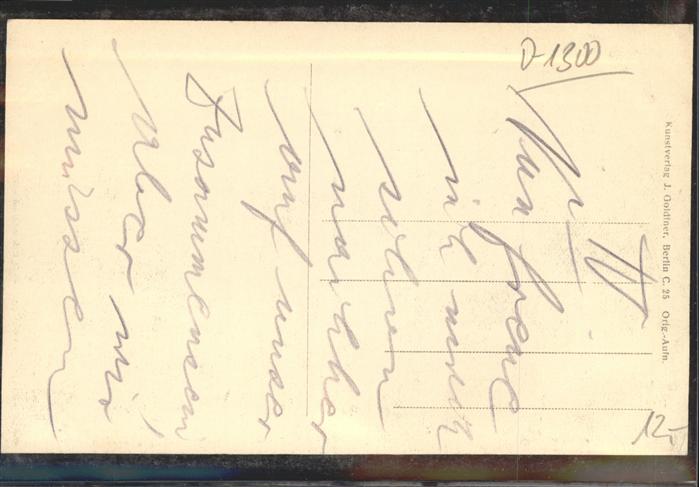 D-1300
Kunstverlag J. Goldiner, Berlin C. 25 Orig.-Aufn.
12-
II
Nun freue
ich mich
schon
auf unser
Zusammensein
Aber wir
müssen